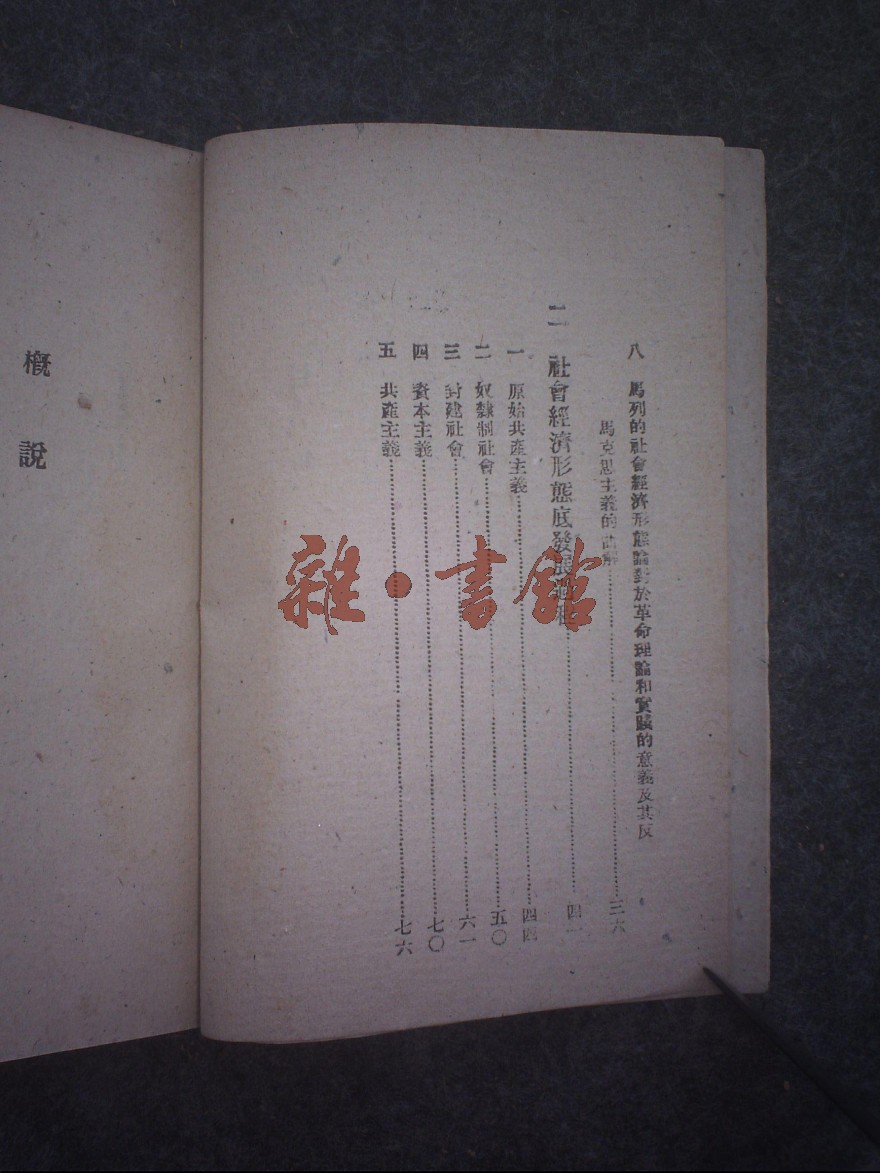 八 馬列的社會經濟形態論對於革命理論和實踐的意義及其反
馬克思主義的曲解……三六
二 社會經濟形態底發展過程……四一
一 原始共產主義……四四
二 奴隸制社會……五〇
三 封建社會……六一
四 資本主義……七〇
五 共產主義……七六
概說
雜·書館